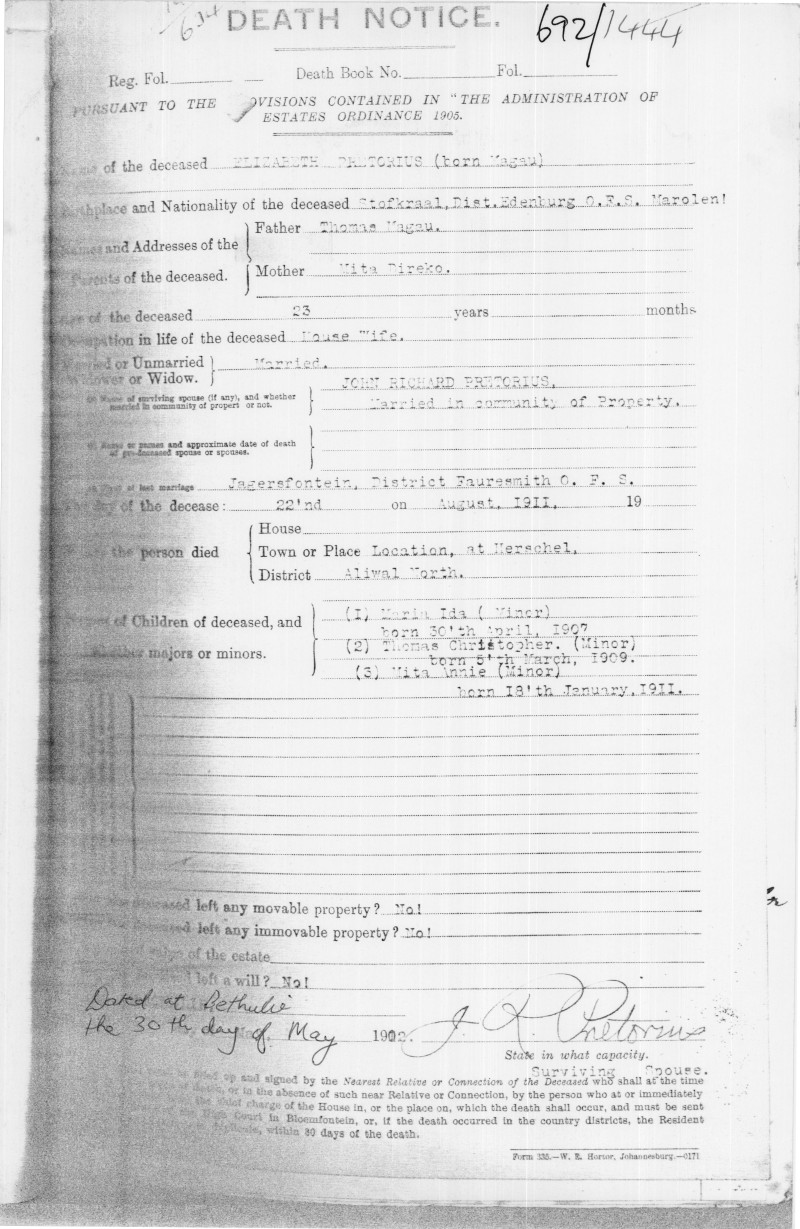 634
DEATH NOTICE.
692/1444
Reg. Fol. Death Book No. Fol.
PURSUANT TO THE PROVISIONS CONTAINED IN "THE ADMINISTRATION OF
ESTATES ORDINANCE 1905.
Name of the deceased ELIZABETH PRETORIUS (born Magau)
Birthplace and Nationality of the deceased Stofkraal, Dist. Edenburg O.F.S. Marolen!
Father Thomas Magau.
Names and Addresses of the
Parents of the deceased.
Mother Mita Direko.
Age of the deceased 23 years months
Occupation in life of the deceased House Wife.
Married or Unmarried Married.
Widower or Widow.
JOHN RICHARD PRETORIUS.
Name of surviving spouse (if any), and whether
married in community of propert or not.
Married in community of Property.
Name or names and approximate date of death
of pre-deceased spouse or spouses.
Place of last marriage Jagersfontein, District Fauresmith O. F. S.
The day of the decease: 22'nd on August, 1911. 19
House
Where the person died Town or Place Location, at Herschel.
District Aliwal North.
of Children of deceased, and
whether majors or minors.
(1) Maria Ida ( Minor)
born 30'th April, 1907
(2) Thomas Christopher. (Minor)
born 5'th March, 1909.
(3) Mita Annie (Minor)
born 18'th January, 1911.
deceased left any movable property? No!
deceased left any immovable property? No!
of the estate
left a will? No!
Dated at Bethulie
the 30th day of May 1912. J. R. Pretorius
State in what capacity.
Surviving Spouse.
filled up and signed by the Nearest Relative or Connection of the Deceased who shall at the time
death, or in the absence of such near Relative or Connection, by the person who at or immediately
the chief charge of the House in, or the place on, which the death shall occur, and must be sent
Court in Bloemfontein, or, if the death occurred in the country districts, the Resident
within 30 days of the death.
Form 335.—W. E. Hortor, Johannesburg.—0171